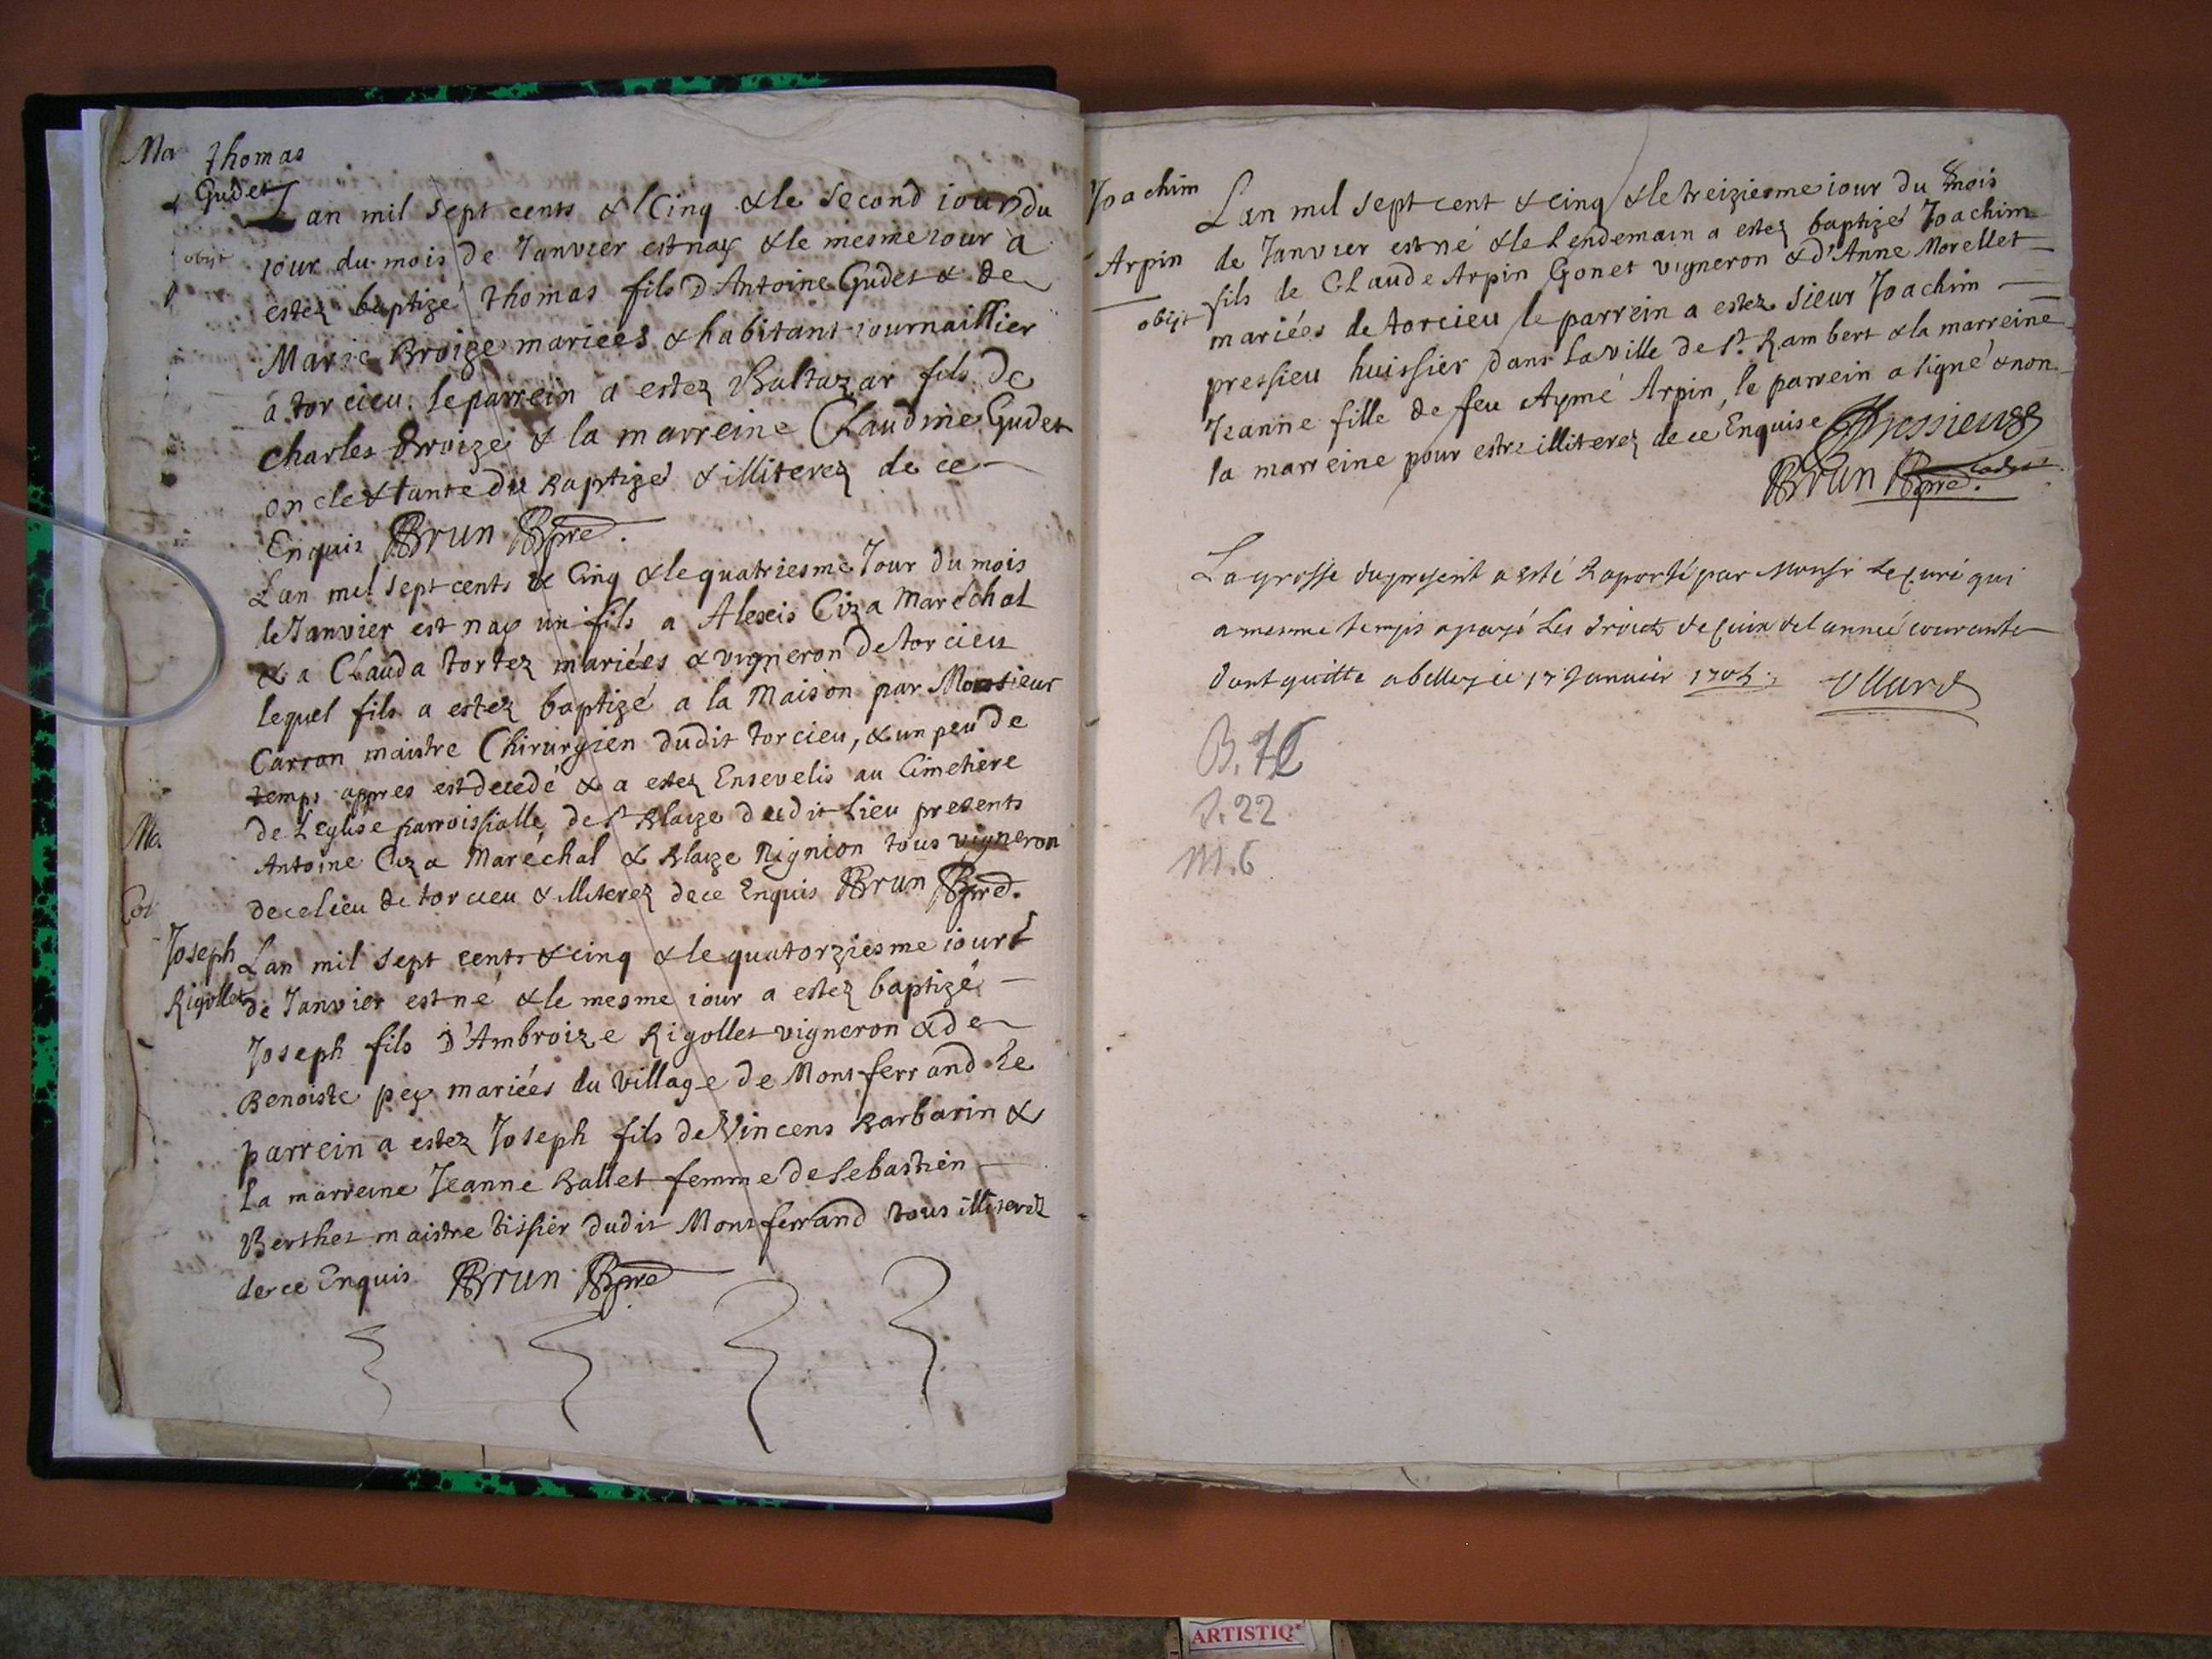 Ma
Thomas
Gudet
obijt
Lan mil sept cents & Cinq & le second iour du
iour du mois de Janvier est nay & le mesme iour a
estez baptizé Thomas fils D'Antoine Gudet & de
Marie Broize mariées & habitant iournaillier
a torcieu. le parrein a estez Baltazar fils de
Charles Broize & la marreine Claudine Gudet
oncle & tante du Baptizé & illiterez de ce
Enquis BBrun Bpre.
Lan mil sept cents & Cinq & le quatriesme Jour du mois
de Janvier est nay un fils a Alexis Ciza Maréchal
& a Clauda tortez mariées & vigneron de torcieu
lequel fils a estez baptizé a la Maison par Monsieur
Carron maistre Chirurgien dudit torcieu, & un peu de
temps appres est decedé & a estez Ensevelis au Cimetiere
de Leglise parroissialle de St Blaize dudit Lieu presents
Antoine Ciza Maréchal & Blaize Nignion tous vigneron
de ce lieu de torcieu & illiterez de ce Enquis BBrun Bpre.
Ma
Joseph
Rigollet
Lan mil sept cents & cinq & le quatorziesme iour
de Janvier est né & le mesme iour a estez baptizé
Joseph fils D'Ambroize Rigollet vigneron & de
Benoiste pey mariées du Village de Montferrand Le
parrein a estez Joseph fils de Vincens Barbarin &
La marreine Jeanne Ballet femme de Sebastien
Berthet maistre tissier dudit Montferrand tous illiterez
de ce Enquis BBrun Bpre
Joachim
Arpin
obijt
Lan mil sept cent & cinq & le treiziesme iour du mois
de Janvier est né & le Lendemain a estez baptizé Joachim
fils de Claude Arpin Gonet vigneron & d'Anne Morellet
mariées de torcieu le parrein a estez sieur Joachim
pressieu huissier dans la ville de St. Rambert & la marreine
Jeanne fille de feu Aymé Arpin, le parrein a signé & non
la marreine pour estre illiterez de ce Enquise Pressieu
BBrun Bpre.
La grosse du present a esté Raporté par Monsr le Curé qui
a mesme temps a payé Les droicts de l'année courante
dont quitte a belley ce 17 Janvier 1705. Ullard
B. 72
S. 22
M. 6
ARTISTIQ